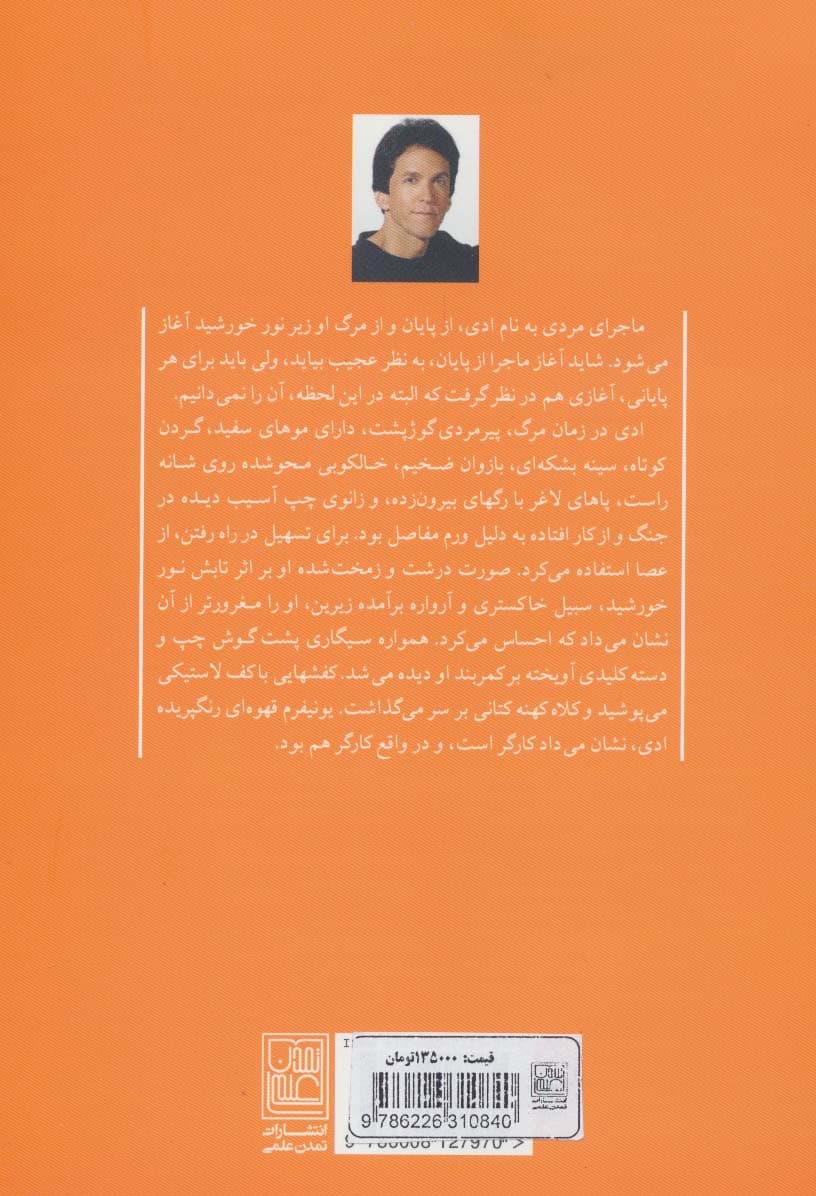 ماجرای مردی به نام ادی، از پایان و از مرگ او زیر نور خورشید آغاز
می‌شود. شاید آغاز ماجرا از پایان، به نظر عجیب بیاید، ولی باید برای هر
پایانی، آغازی هم در نظر گرفت که البته در این لحظه، آن را نمی‌دانیم.
ادی در زمان مرگ، پیرمردی گوژپشت، دارای موهای سفید، گردن
کوتاه، سینه بشکه‌ای، بازوان ضخیم، خالکوبی محو شده روی شانه
راست، پاهای لاغر با رگهای بیرون‌زده، و زانوی چپ آسیب دیده در
جنگ و از کار افتاده به دلیل ورم مفاصل بود. برای تسهیل در راه رفتن، از
عصا استفاده می‌کرد. صورت درشت و زمخت‌شده او بر اثر تابش نور
خورشید، سبیل خاکستری و آرواره برآمده زیرین، او را مغرورتر از آن
نشان می‌داد که احساس می‌کرد. همواره سیگاری پشت گوش چپ و
دسته کلیدی آویخته بر کمربند او دیده می‌شد. کفشهایی با کف لاستیکی
می‌پوشید و کلاه کهنه کتانی بر سر می‌گذاشت. یونیفرم قهوه‌ای رنگپریده
ادی، نشان می‌داد کارگر است، و در واقع کارگر هم بود.
تمدن علمی
انتشارات
تمدن علمی
قیمت: ۱۳۵۰۰۰تومان
انتشارات
تمدن علمی
9 786226 310840
127970 >